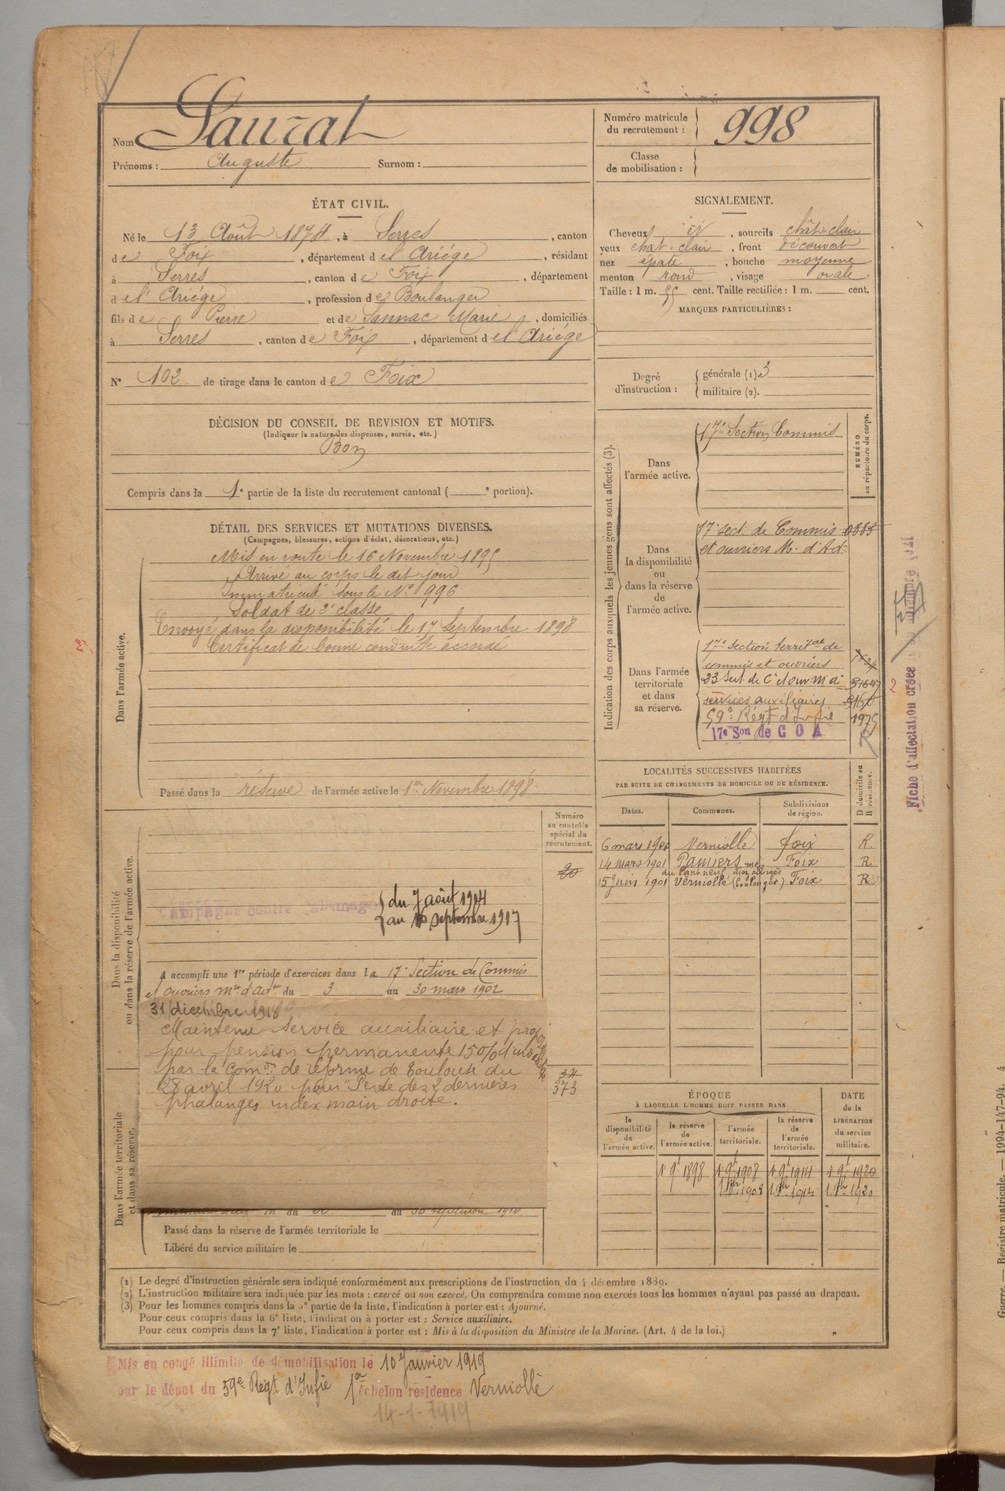 Nom Sauzat
Prénoms : Auguste Surnom :
Numéro matricule du recrutement : 998
Classe de mobilisation :
ÉTAT CIVIL.
Né le 13 Août 1874, à Serres, canton
de Foix, département de l'Ariége, résidant
à Serres, canton de Foix, département
de l'Ariége, profession de Boulanger
fils de Pierre et de Sannac Marie, domiciliés
à Serres, canton de Foix, département de l'Ariége
N° 102 de tirage dans le canton de Foix
SIGNALEMENT.
Cheveux id, sourcils chât clair
yeux chat. clair, front découvert
nez épaté, bouche moyenne
menton rond, visage ovale
Taille : 1 m. 55 cent. Taille rectifiée : 1 m. cent.
MARQUES PARTICULIÈRES :
Degré d'instruction : générale (1) 3
militaire (2).
DÉCISION DU CONSEIL DE REVISION ET MOTIFS.
(Indiquer la nature des dispenses, sursis, etc.)
Bon
Compris dans la 1e partie de la liste du recrutement cantonal ( e portion).
DÉTAIL DES SERVICES ET MUTATIONS DIVERSES.
(Campagnes, blessures, actions d'éclat, décorations, etc.)
Dans l'armée active.
Mis en route le 16 Novembre 1895
Arrivé au corps le dit jour
Immatriculé sous le N° 996
Soldat de 2e classe
Envoyé dans la disponibilité le 17 Septembre 1898
Certificat de bonne conduite accordé
Passé dans la réserve de l'armée active le 1er Novembre 1898
Indication des corps auxquels les jeunes gens sont affectés (3).
NUMÉRO au répertoire du corps.
Dans l'armée active.
17e Section Commis
Dans la disponibilité ou dans la réserve de l'armée active.
17e sect. de Commis 0885
et ouvriers M. d'Ad.
Dans l'armée territoriale et dans sa réserve.
17e Section territale de
commis et ouvriers
23 sect de Cis et ouv m a
services auxiliaires
59e Régt d'Infie 1975
17e Son de C O A
Fiche d'affectation créée
LOCALITÉS SUCCESSIVES HABITÉES
PAR SUITE DE CHANGEMENTS DE DOMICILE OU DE RÉSIDENCE.
Dates. Communes. Subdivisions de région. D domicile ou R résidence.
6 mars 1900 Verniolle Foix R.
14 mars 1901 Pamiers Foix R
15 juin 1901 Verniolle (boulanger) Foix R
Dans la disponibilité ou dans la réserve de l'armée active.
Numéro au contrôle spécial du recrutement.
20
Campagne contre l'Allemagne du 7 août 1914
au 10 septembre 1917
A accompli une 1re période d'exercices dans la 17e Section de Commis
et ouvriers mres d'adon du 3 au 30 mars 1902
Dans l'armée territoriale et dans sa réserve.
31 décembre 1918
Maintenu service auxiliaire et prop
pour pension permanente 15%
par la Comon de réforme de Toulouse du
28 avril 1920 pour "Perte des 2 dernières
phalanges index main droite.
34
373
Passé dans la réserve de l'armée territoriale le
Libéré du service militaire le
ÉPOQUE
À LAQUELLE L'HOMME DOIT PASSER DANS
la disponibilité de l'armée active. la réserve de l'armée active. l'armée territoriale. la réserve de l'armée territoriale. DATE de la LIBÉRATION du service militaire.
1 9e 1898 1 9e 1908 1 9e 1914 1 9e 1920
(1) Le degré d'instruction générale sera indiqué conformément aux prescriptions de l'instruction du 4 décembre 1889.
(2) L'instruction militaire sera indiquée par les mots : exercé ou non exercé. On comprendra comme non exercés tous les hommes n'ayant pas passé au drapeau.
(3) Pour les hommes compris dans la 5e partie de la liste, l'indication à porter est : Ajourné.
Pour ceux compris dans la 6e liste, l'indication à porter est : Service auxiliaire.
Pour ceux compris dans la 7e liste, l'indication à porter est : Mis à la disposition du Ministre de la Marine. (Art. 4 de la loi.)
Mis en congé illimité de démobilisation le 10 Janvier 1919
par le dépot du 59e Régt d'Infie 1er échelon résidence Verniolle
14-1-1919
Registre matricule. — 1994-147-94.